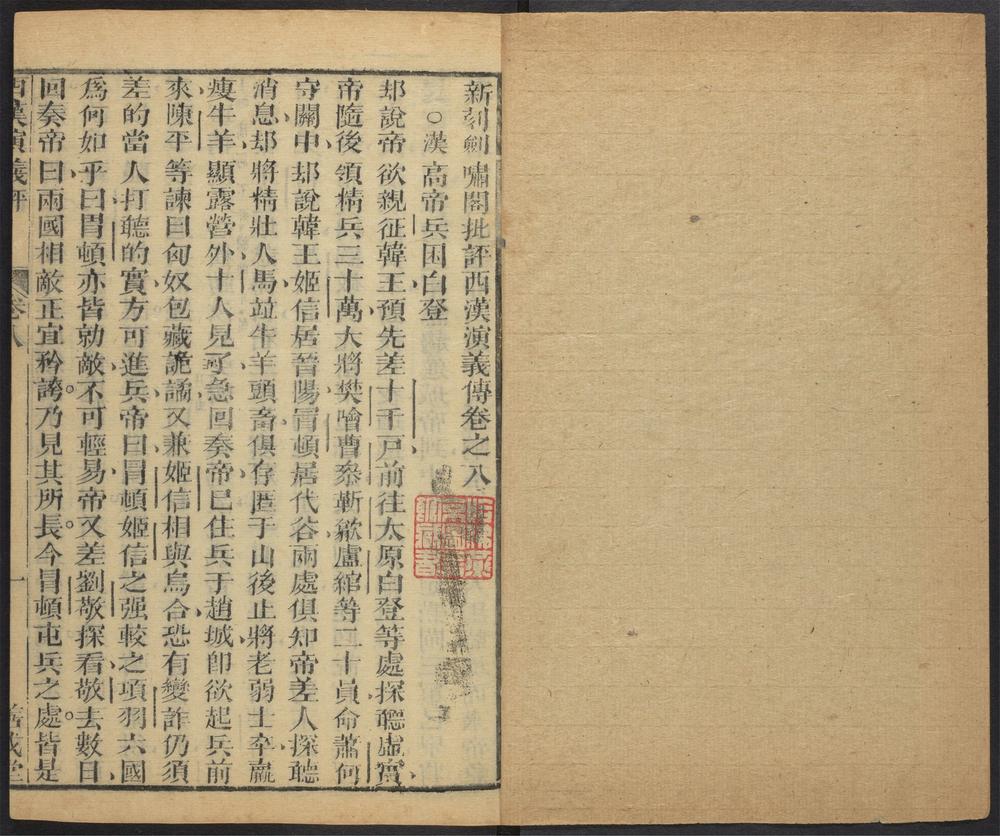 新刻劍嘯閣批評西漢演義傳卷之八
○漢高帝兵困白登
却說帝欲親征韓王預先差十千戸前往太原白登等處探聽虛實
帝隨後領精兵三十萬大將樊噲曹叅靳歙盧綰等二十員命蕭何
守關中却說韓王姬信居晉陽冐頓居代谷兩處俱知帝差人探聽
消息却將精壯人馬竝牛羊頭畜俱存匿于山後止將老弱士卒羸
瘦牛羊顯露營外十人見了急回奏帝巳住兵于趙城卽欲起兵前
來陳平等諫曰匈奴包藏詭譎又兼姬信相與烏合恐有變詐仍須
差的當人打聽的實方可進兵帝曰冐頓姬信之强較之項羽六國
爲何如乎曰冐頓亦皆勍敵不可輕易帝又差劉敬探看敬去數日
回奏帝曰兩國相敵正宜矜誇乃見其所長今冒頓屯兵之處皆是
西漢演義評 卷八 一 善成堂